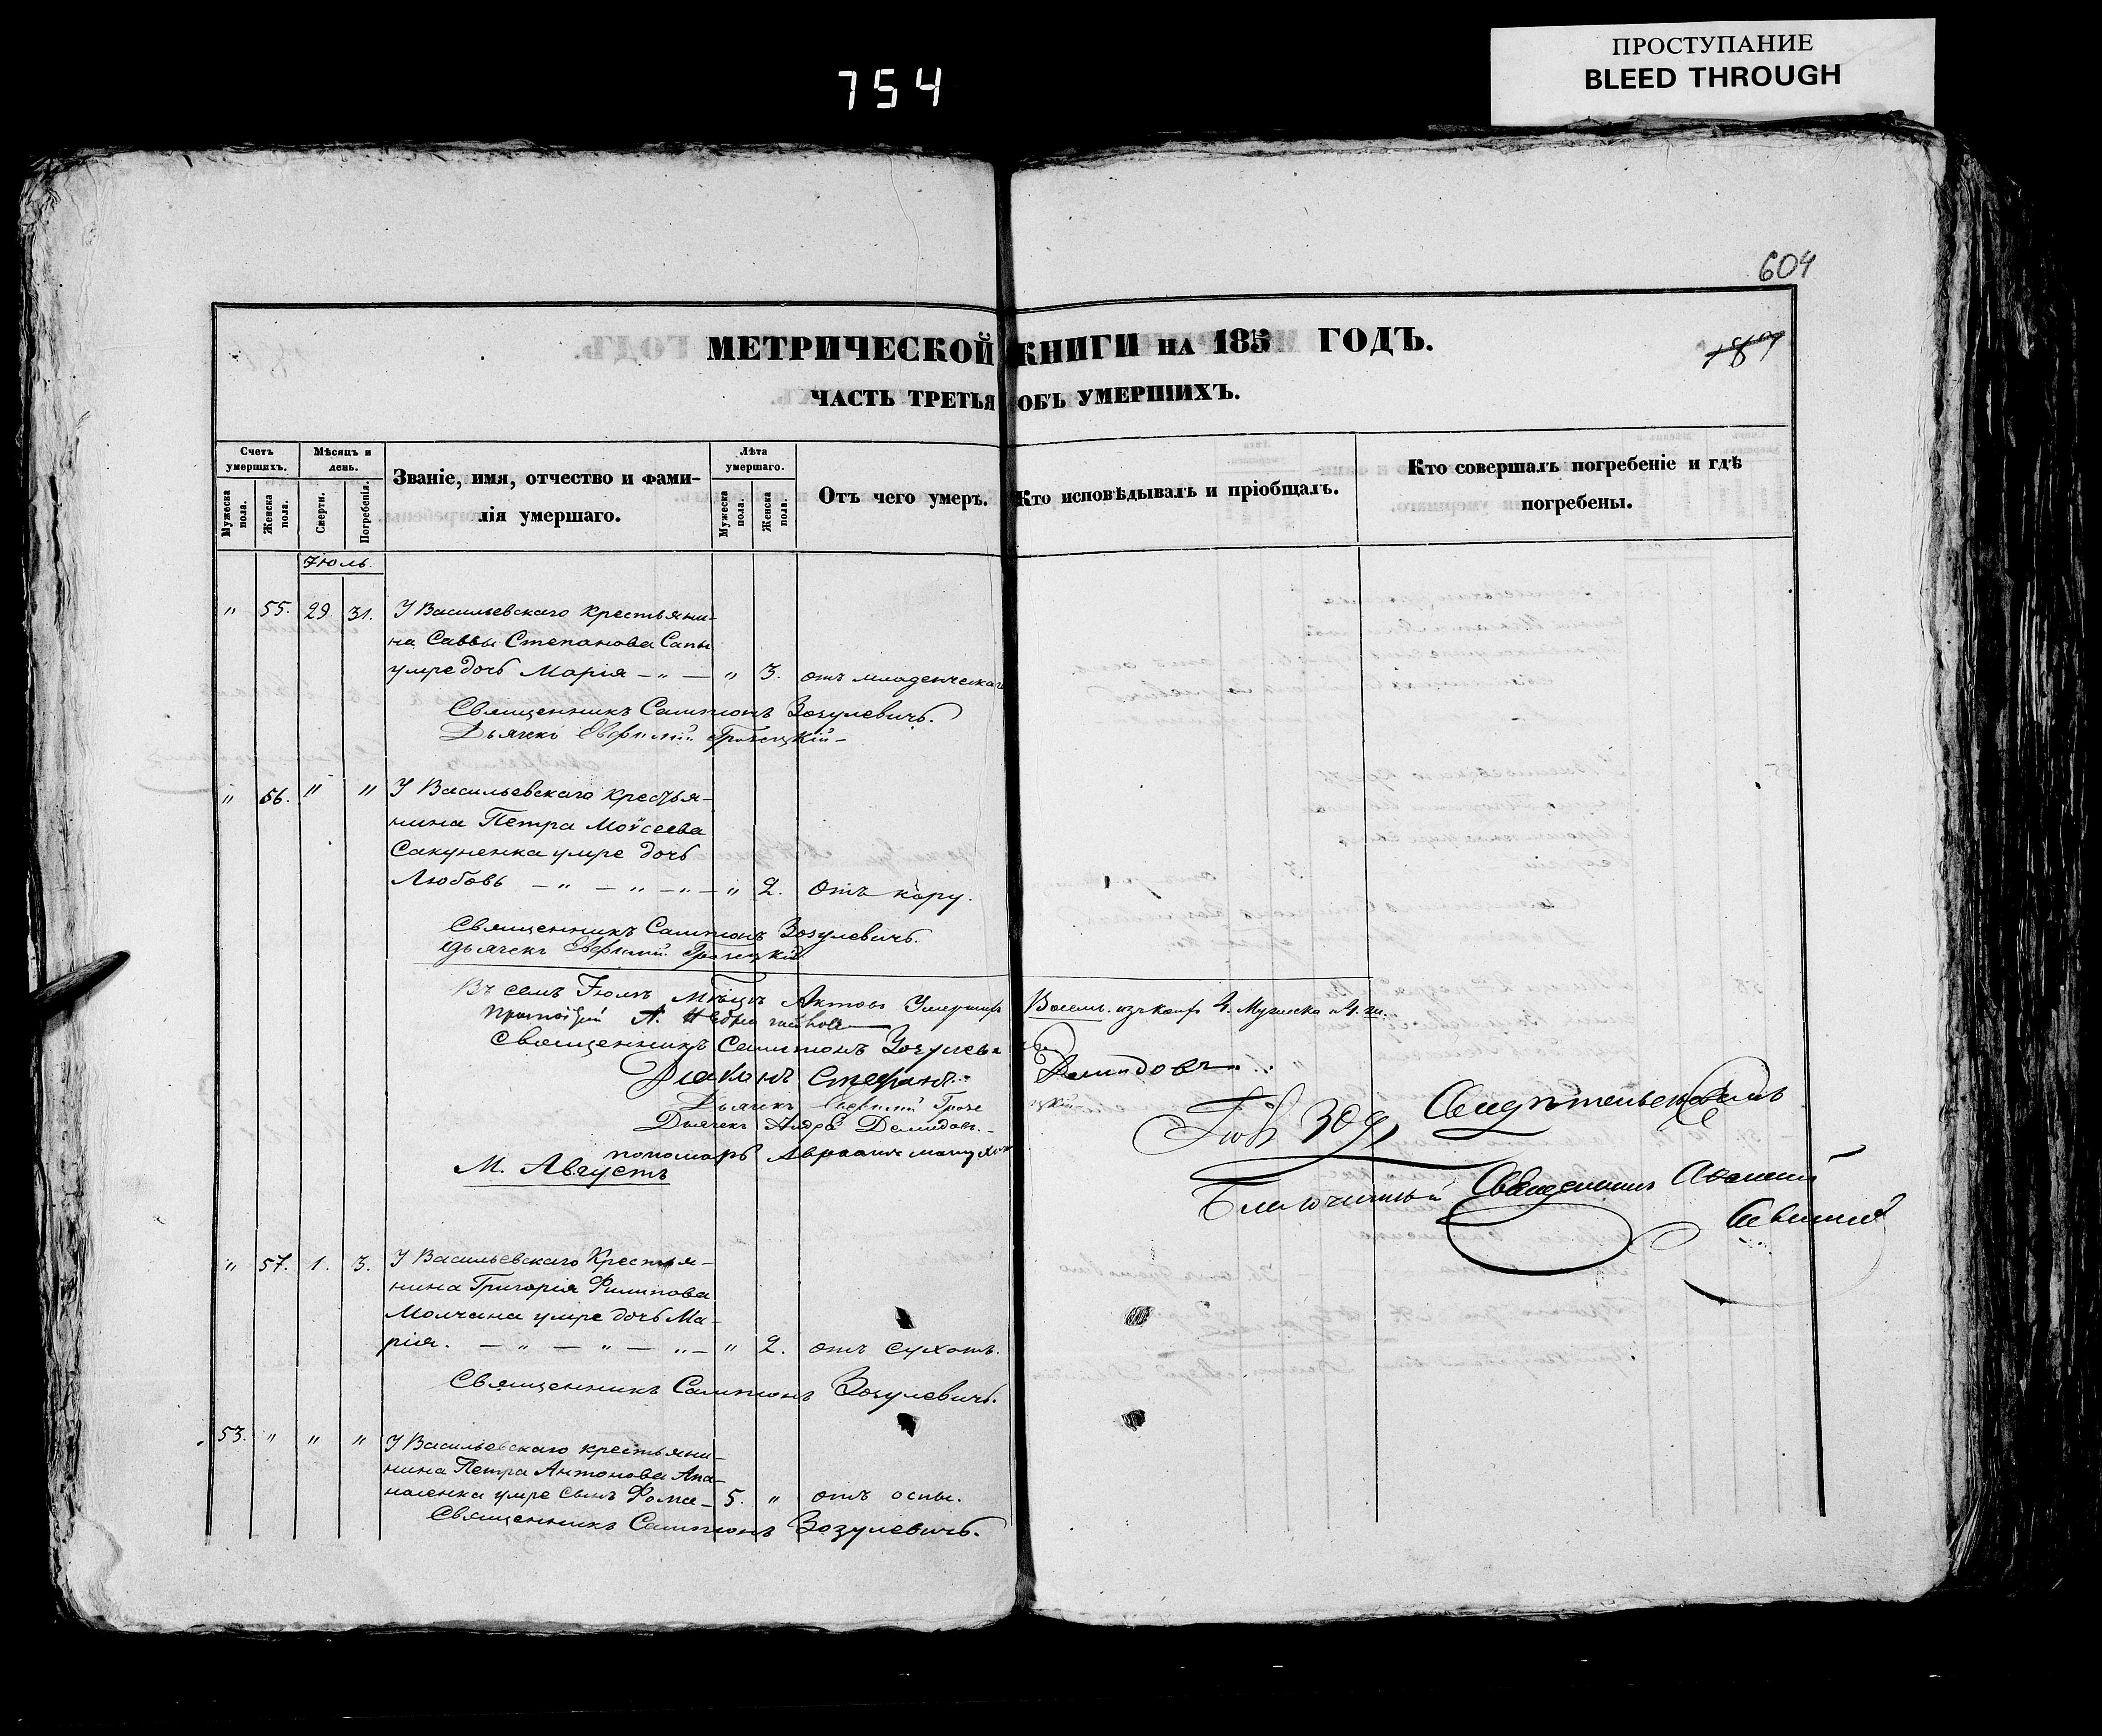 754
ПРОСТУПАНИЕ
BLEED THROUGH
604
МЕТРИЧЕСКОЙ КНИГИ НА 185 ГОДЪ.
ЧАСТЬ ТРЕТЬЯ ОБЪ УМЕРШИХЪ.
Счетъ умершихъ.
Мужеска пола.
Женска пола.
Мѣсяцъ и день.
Смерти.
Погребенія.
Званіе, имя, отчество и фами-
лія умершаго.
Лѣта умершаго.
Мужеска пола.
Женска пола.
Отъ чего умеръ.
Кто исповѣдывалъ и пріобщалъ.
Кто совершалъ погребеніе и гдѣ
погребены.
Іюль.
" 55. 29 31. У Васильевскаго крестьяни-
на Саввы Степанова Сапы
умре дочь Марія — " — " 3. отъ младенческаго
Священникъ Сампсонъ Зозулевичъ.
Дьячекъ
" 56. " " У Васильевскаго крестья-
нина Петра Моѵсеева
Сакуненка умре дочь
Любовь — " — " — " — " 2. Отъ кору.
Священникъ Сампсонъ Зозулевичъ.
дьячекъ
Въ семъ Іюлѣ Мѣсцѣ Актовъ Умершихъ Восемь. изъ коихъ 4. Мужеска и 4. ж.
Священникъ Сампсонъ Зозулевичъ
Діаконъ Стефанъ Демидовъ
Дьячекъ
Дьячекъ Андрей Демидовъ.
пономарь
Свидѣтельствовалъ
30 д.
Благочинный Священникъ
М. Августъ
" 57. 1. 3. У Васильевскаго Крестья-
нина Григорія Филипова
Молчана умре дочь Ма-
рія. — " — " — " — " 2. отъ сухотъ.
Священникъ Сампсонъ Зозулевичъ.
53. " " " У Васильевскаго крестьяни-
нина Петра Антонова Апа-
насенка умре сынъ Фома — 5. " отъ оспы.
Священникъ Сампсонъ Зозулевичъ.